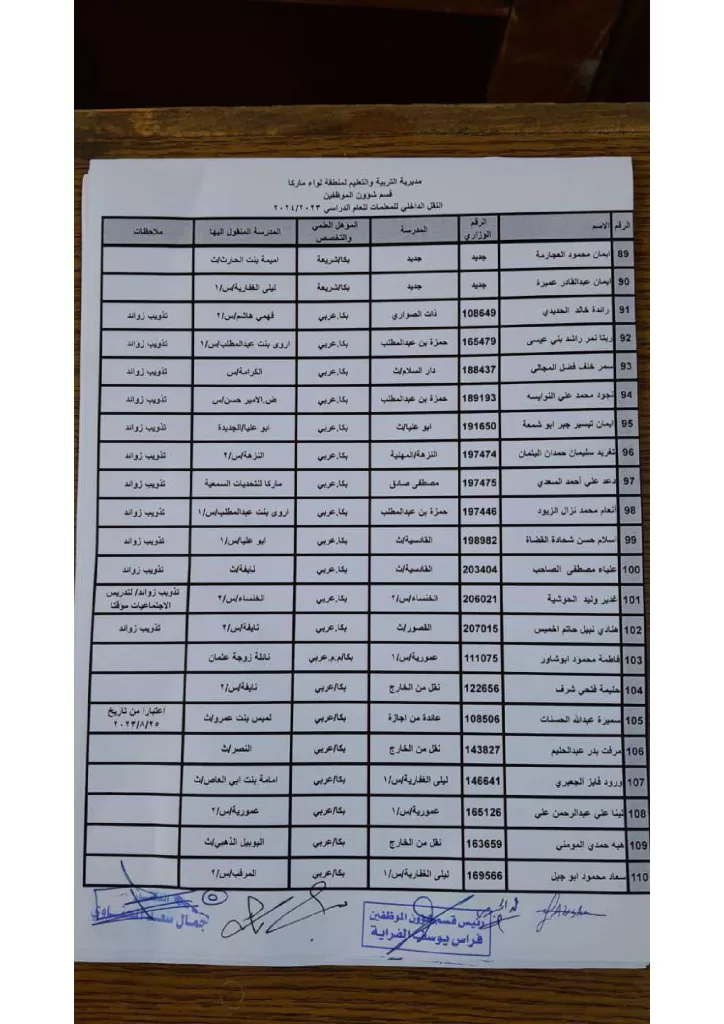 مديرية التربية والتعليم لمنطقة لواء ماركا
قسم شؤون الموظفين
النقل الداخلي للمعلمات للعام الدراسي ٢٠٢٤/٢٠٢٣
الرقم الاسم الرقم الوزاري المدرسة المؤهل العلمي والتخصص المدرسة المنقول اليها ملاحظات
89 ايمان محمود العجارمة جديد جديد بكا/شريعة اميمة بنت الحارث/ث
90 ايمان عبدالقادر عميرة جديد جديد بكا/شريعة ليلى الغفارية/س/١
91 رائدة خالد الحديدي 108649 ذات الصواري بكا.عربي فهمي هاشم/س/٢ تذويب زوائد
92 رينا نمر راشد بني عيسى 165479 حمزة بن عبدالمطلب بكا.عربي اروى بنت عبدالمطلب/س/١ تذويب زوائد
93 سمر خلف فضل المجالي 188437 دار السلام/ث بكا.عربي الكرامة/س تذويب زوائد
94 نجود محمد علي النوايسه 189193 حمزة بن عبدالمطلب بكا.عربي ض.الامير حسن/س تذويب زوائد
95 ايمان تيسير جبر ابو شمعة 191650 ابو عليا/ث بكا.عربي ابو عليا/الجديدة تذويب زوائد
96 تغريد سليمان حمدان اليثمان 197474 النزهة/المهنية بكا.عربي النزهة/س/٢ تذويب زوائد
97 دعد علي أحمد السعدي 197475 مصطفى صادق بكا.عربي ماركا للتحديات السمعية تذويب زوائد
98 أنعام محمد نزال الزيود 197446 حمزة بن عبدالمطلب بكا.عربي اروى بنت عبدالمطلب/س/١ تذويب زوائد
99 اسلام حسن شحادة القضاة 198982 القادسية/ث بكا.عربي ابو عليا/س/١ تذويب زوائد
100 علياء مصطفى الصاحب 203404 القادسية/ث بكا.عربي نايفة/ث تذويب زوائد
101 غدير وليد الحوشية 206021 الخنساء/س/٢ بكا.عربي الخنساء/س/٢ تذويب زوائد/ لتدريس الاجتماعيات موقتا
102 هنادي نبيل حاتم اخميس 207015 القصور/ث بكا.عربي نايفة/س/٢ تذويب زوائد
103 فاطمة محمود ابوشاور 111075 عمورية/س/١ بكا/م.م.عربي نائلة زوجة عثمان
104 حليمة فتحي شرف 122656 نقل من الخارج بكا/عربي نايفة/س/٢
105 سميرة عبدالله الحسنات 108506 عائدة من اجازة بكا/عربي لميس بنت عمرو/ث اعتبارا من تاريخ ٢٠٢٣/٨/٢٥
106 مرفت بدر عبدالحليم 143827 نقل من الخارج بكا/عربي النصر/ث
107 ورود فايز الجعبري 146641 ليلى الغفارية/س/١ بكا/عربي امامة بنت ابي العاص/ث
108 لينا علي عبدالرحمن علي 165126 عمورية/س/١ بكا/عربي عمورية/س/٢
109 هبه حمدي المومني 163659 نقل من الخارج بكا/عربي اليوبيل الذهبي/ث
110 سعاد محمود ابو جبل 169566 ليلى الغفارية/س/١ بكا/عربي المرقب/س/٢
رئيس قسم شؤون الموظفين
فراس يوسف الفراية
جمال